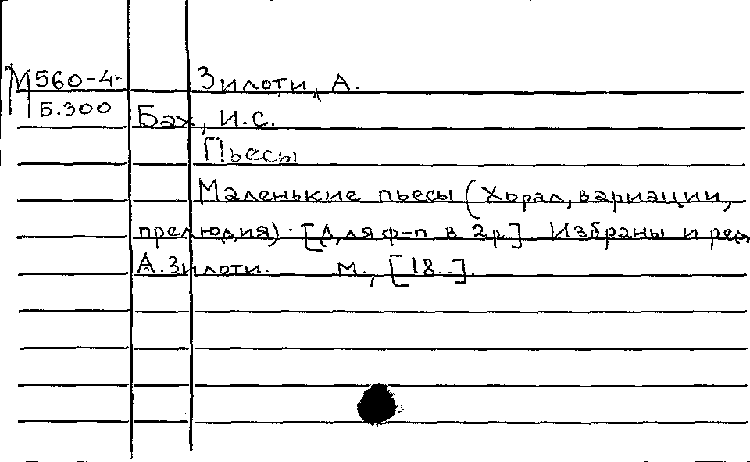 М560-4-
Б.300
Зилоти, А.
Бах, И.С.
Пьесы
Маленькие пьесы (Хорал, вариации,
прелюдия). [Для ф-п в 2р] Избраны и ред
А.Зилоти. М., [18..].